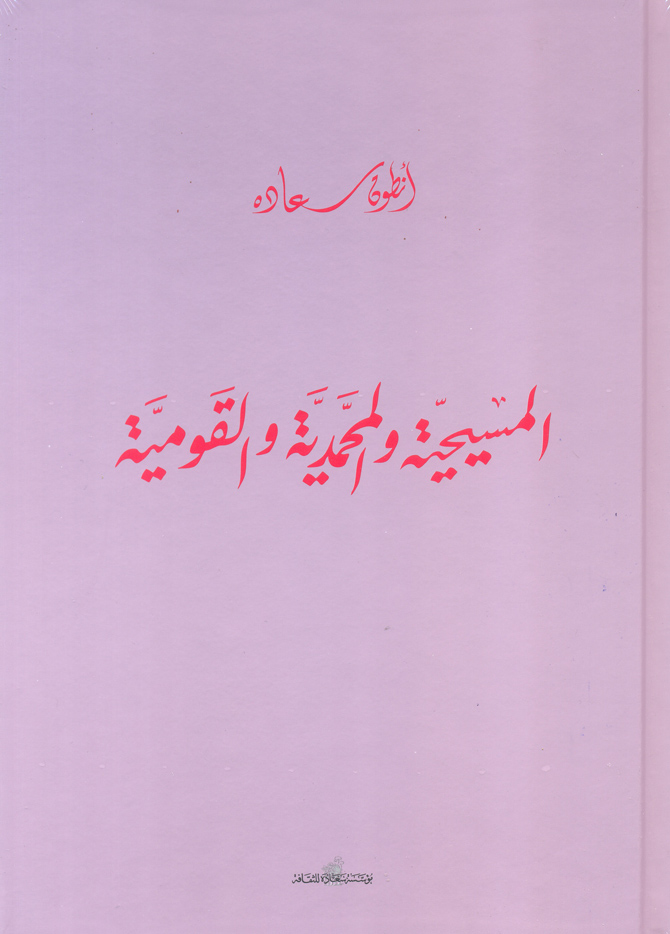 أنطون سعاده
المسيحيّة والمحمّديَّة والقَوميَّة
مؤسسة سعادة للثقافة